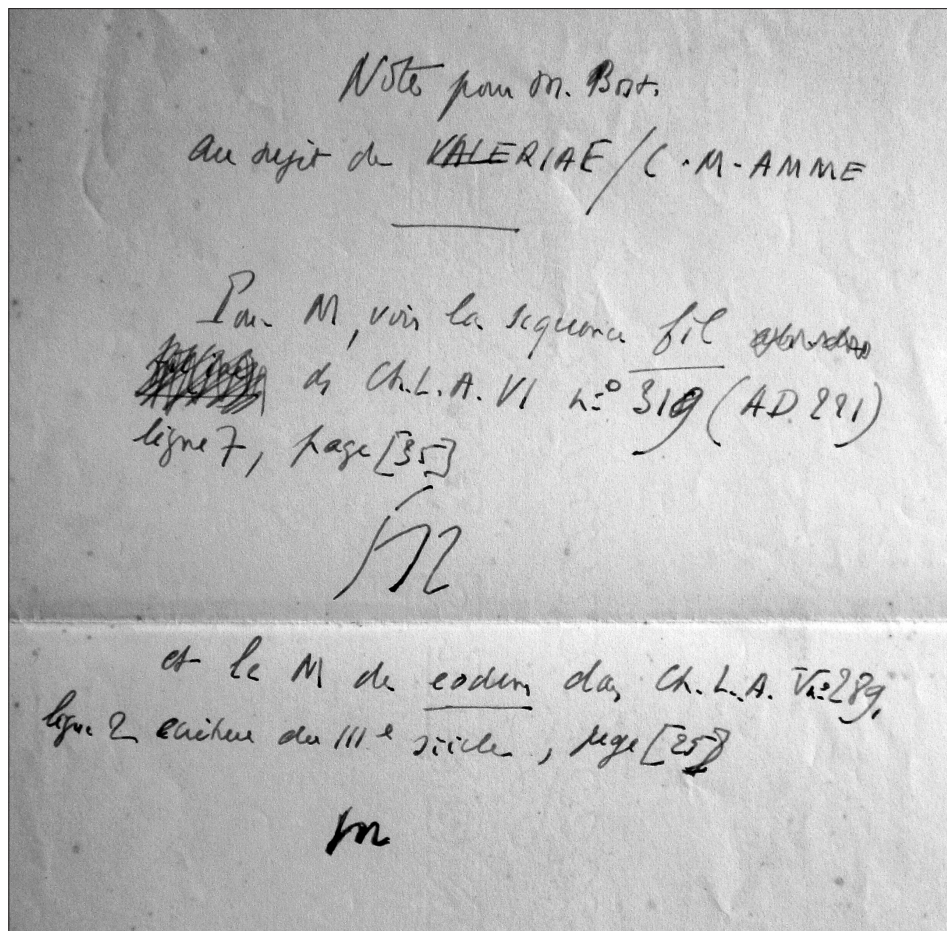 Note pour M. Bost.
au sujet de VALERIAE / C·M·AMME
Pour M, voir la sequence fil
ds Ch.L.A. VI nº 319 (AD 221)
ligne 7, page [35]
et le M de eodem dans Ch.L.A. V nº 289,
ligne 2 écriture du IIIe siècle, page [25]
m